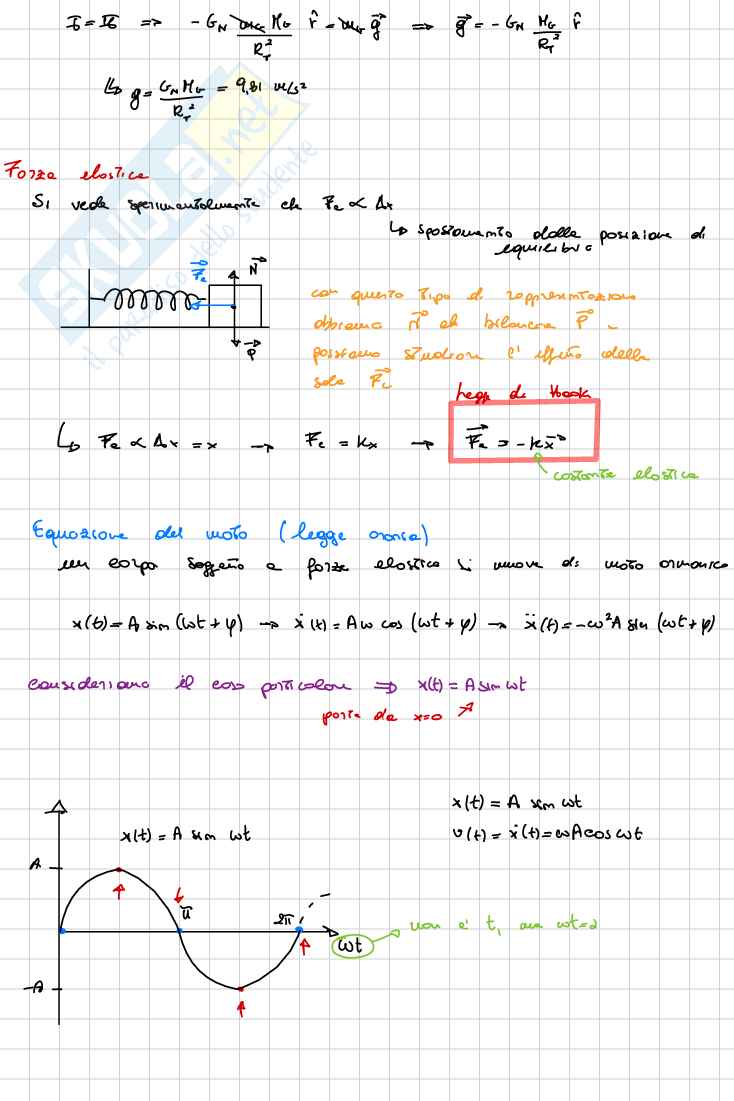 I = II ⇒ - G_N m_G M_G / R_T² r̂ = m_G g⃗ ⇒ g⃗ = - G_N M_G / R_T² r̂
↳ g = G_N M_G / R_T² = 9,81 m/s²
SKUOLA.net
il portale dello studente
Forza elastica
Si vede sperimentalmente che Fe ∝ Δx
↳ spostamento dalla posizione di
equilibrio
F⃗e N⃗
P⃗
con questo tipo di rappresentazione
abbiamo N⃗ che bilancia P⃗
possiamo studiare l'effetto della
sola F⃗e
Legge di Hook
↳ Fe ∝ Δx = x → Fe = kx → F⃗e = -kx⃗
costante elastica
Equazione del moto (legge oraria)
un corpo soggetto a forza elastica si muove di moto armonico
x(t) = A sin (ωt + φ) → ẋ(t) = Aω cos (ωt + φ) → ẍ(t) = -ω²A sin (ωt + φ)
consideriamo il caso particolare ⇒ x(t) = A sin ωt
parte da x=0
x(t) = A sin ωt
v(t) = ẋ(t) = ωA cos ωt
x(t) = A sin ωt
A
π
2π
ωt
non è t, ma ωt=α
-A